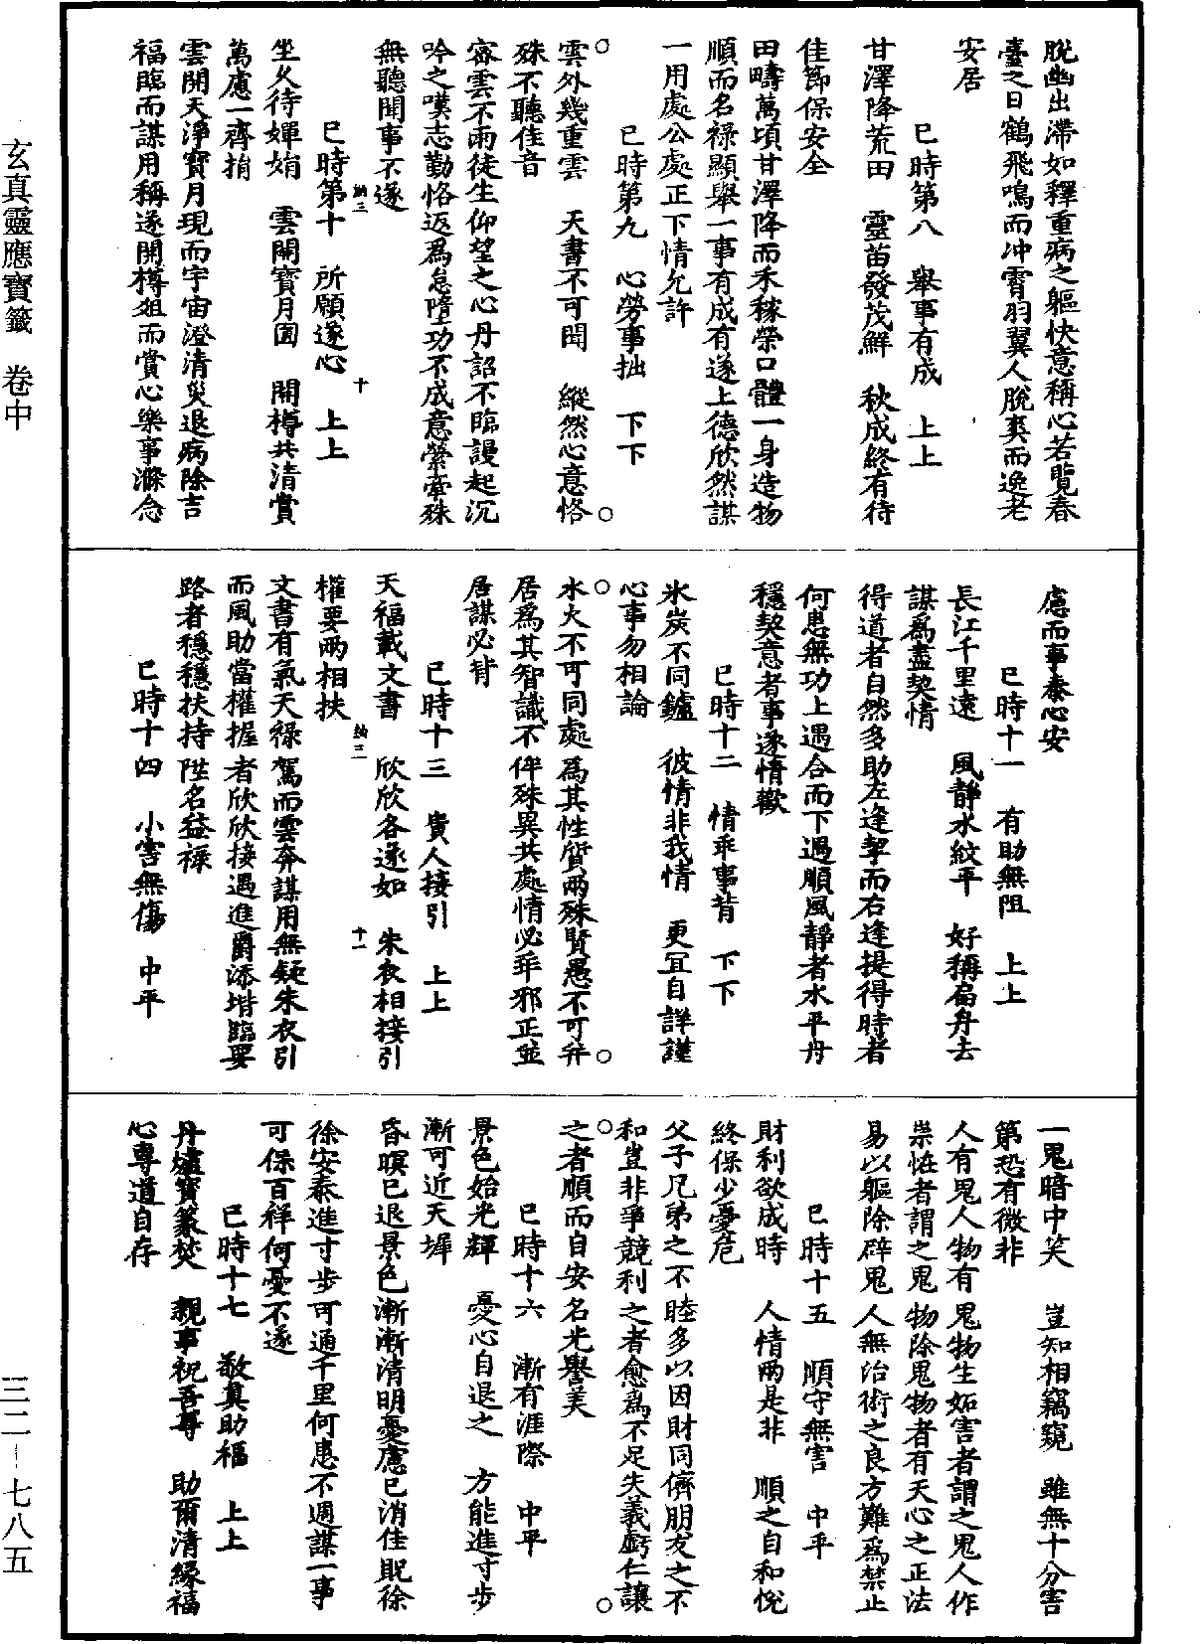 脫幽出滯如釋重病之軀快意稱心若覽春
臺之日鶴飛鳴而冲霄羽翼人脫爽而逸老
安居
巳時第八　舉事有成　上上
甘澤降荒田　靈苗發茂鮮　秋成終有待
佳節保安全
田疇萬頃甘澤降而禾稼榮口體一身造物
順而名祿顯舉一事有成有遂上德欣然謀
一用處公處正下情允許
巳時第九　心勞事拙　下下
雲外幾重雲　天書不可聞　縱然心意恪
殊不聽佳音
○密雲不雨徒生仰望之心丹詔不臨謾起沉○
吟之嘆志勤恪返為怠墮功不成意縈牽殊
無聽聞事不遂
納三　十
巳時第十　所願遂心　上上
坐久待嬋娟　雲開寶月圓　開樽共清賞
萬慮一齊捐
雲開天淨寶月現而宇宙澄清災退病除吉
福臨而謀用稱遂開樽俎而賞心樂事滌念
慮而事泰心安
巳時十一　有助無阻　上上
長江千里遠　風靜水紋平　好稱扁舟去
謀為盡契情
得道者自然多助左逢挈而右逢提得時者
何患無功上遇合而下遇順風靜者水平舟
穩契意者事遂情歡
巳時十二　情乖事背　下下
氷炭不同鑪　彼情非我情　更冝自詳謹
心事勿相論
○水火不可同處為其性質兩殊賢愚不可并○
居為其智識不侔殊異共處情必乖邪正並
居謀必背
巳時十三　貴人接引　上上
天福載文書　欣欣各遂如　朱衣相接引
權要兩相扶
納三　十一
文書有氣天祿駕而雲奔謀用無疑朱衣引
而風助當權握者欣欣接遇進爵添堦臨要
路者穩穩扶持陞名益祿
巳時十四　小害無傷　中平
一鬼暗中笑　豈知相竊窺　雖無十分害
第恐有微非
人有鬼人物有鬼物生妬害者謂之鬼人作
祟恠者謂之鬼物除鬼物者有天心之正法
易以軀除辟鬼人無治術之良方難為禁止
巳時十五　順守無害　中平
財利欲成時　人情兩是非　順之自和悅
終保少憂危
父子兄弟之不睦多以因財同儕朋友之不
和豈非爭競利之者愈為不足失義虧仁讓
○之者順而自安名光譽美○
巳時十六　漸有涯際　中平
景色始光輝　憂心自退之　方能進寸步
漸可近天墀
昏暝巳退景色漸漸清明憂慮巳消佳貺徐
徐安泰進寸步可通千里何患不週謀一事
可保百祥何憂不遂
巳時十七　敬真助福　上上
丹爐寶篆焚　親事祝吾尊　助爾清緣福
心專道自存
玄真靈應寶籤　卷中
三二—七八五